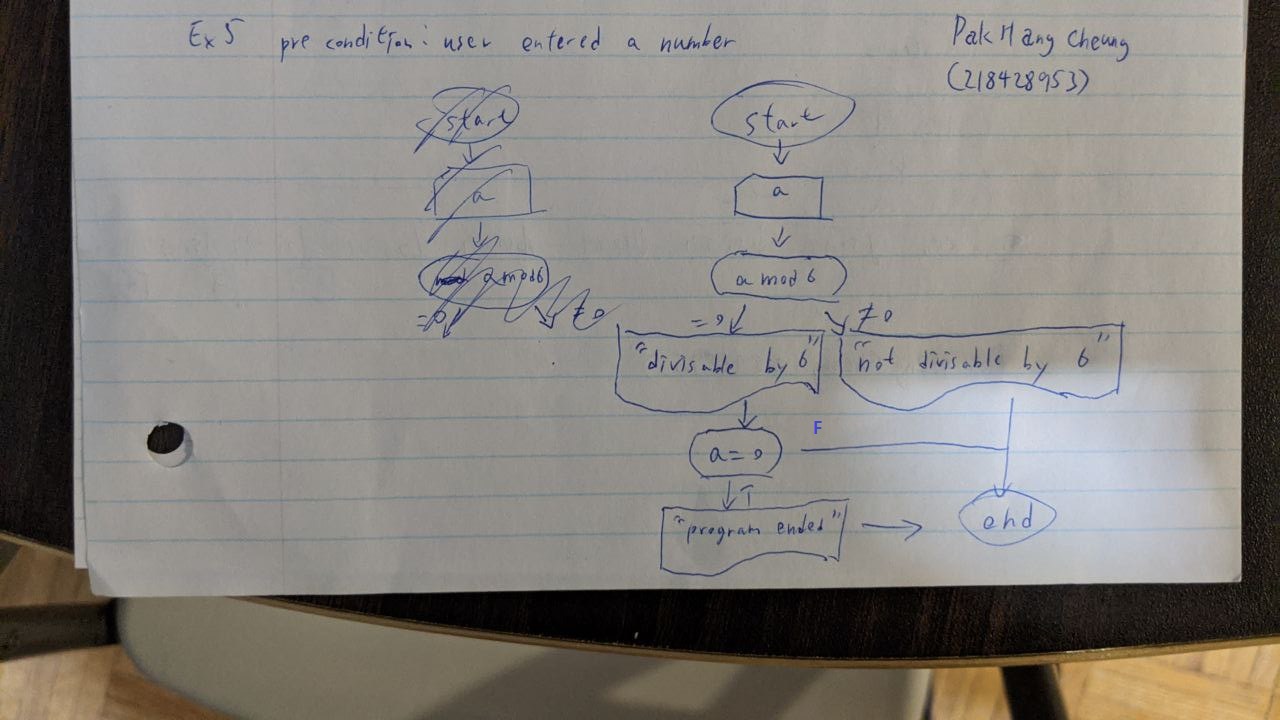 Ex 5 pre condition: user entered a number
Pak Hang Cheung
(218428953)
start
a
a mod 6
= 0
≠ 0
start
a
a mod 6
= 0
≠ 0
"divisable by 6"
"not divisable by 6"
a = 0
F
T
"program ended"
end